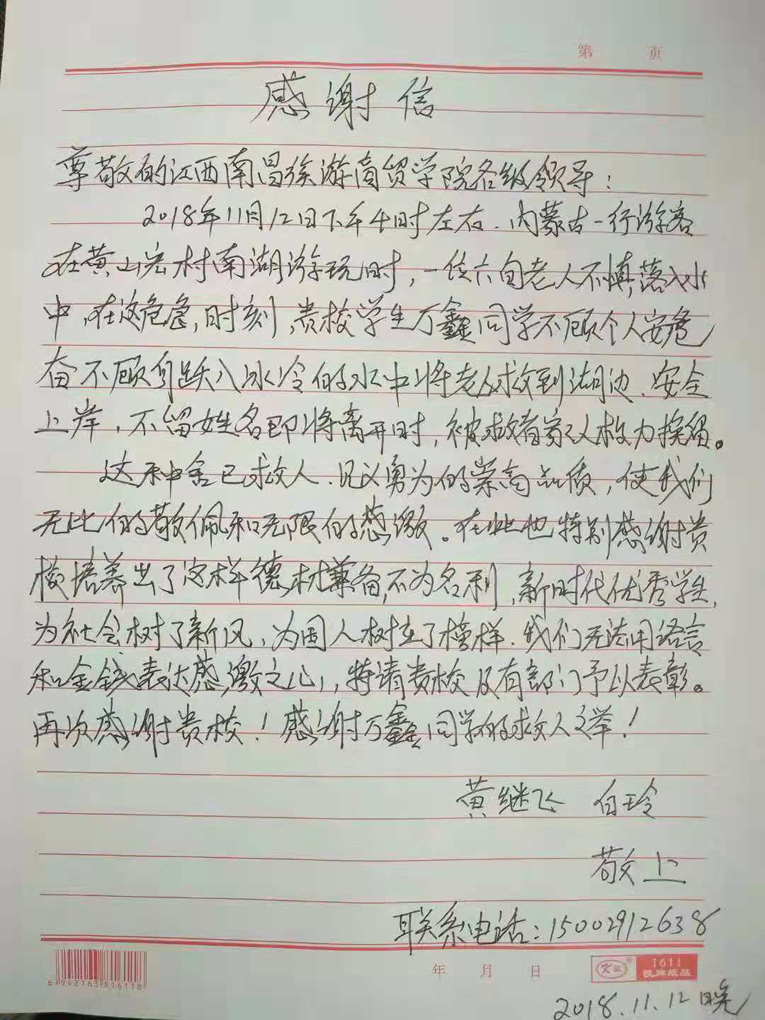 第 页
感谢信
尊敬的江西南昌旅游商贸学院各级领导：
2018年11月12日下午4时左右.内蒙古一行游客
在黄山宏村南湖游玩时，一位六旬老人不慎落入水
中，在这危急，时刻，贵校学生万鑫同学不顾个人安危
奋不顾身跃入冰冷的水中将老人救到湖边、安全
上岸，不留姓名即将离开时，被救者家人极力挽留。
这种舍己救人.见义勇为的崇高品质，使我们
无比的敬佩和无限的感激。在此也特别感谢贵
校培养出了这样德材兼备,不为名利，新时代优秀学生,
为社会树了新风，为国人树立了榜样.我们无法用语言
和金钱表达感激之心,特请贵校及有部门予以表彰。
再次感谢贵校！感谢万鑫同学的救人之举！
黄继飞 白玲
敬上
联系电话:15002912638
年 月 日
1611
6942163816118
2018.11.12晚